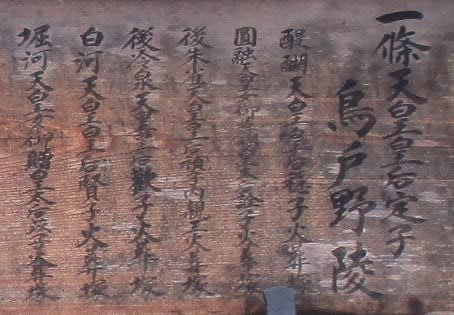 一條天皇皇后定子
鳥戸野陵
醍醐天皇皇后穏子火葬塚
圓融天皇女御皇太后詮子火葬塚
後朱雀天皇皇后禎子内親王火葬塚
後冷泉天皇皇后歡子火葬塚
白河天皇皇后賢子火葬塚
堀河天皇女御贈皇太后苡子火葬塚